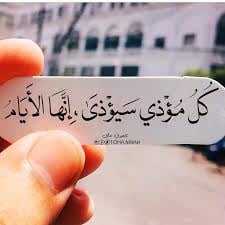 كُلُ مُؤذي سَيؤذىَ ، إِنَّهَا الأَيَامُ